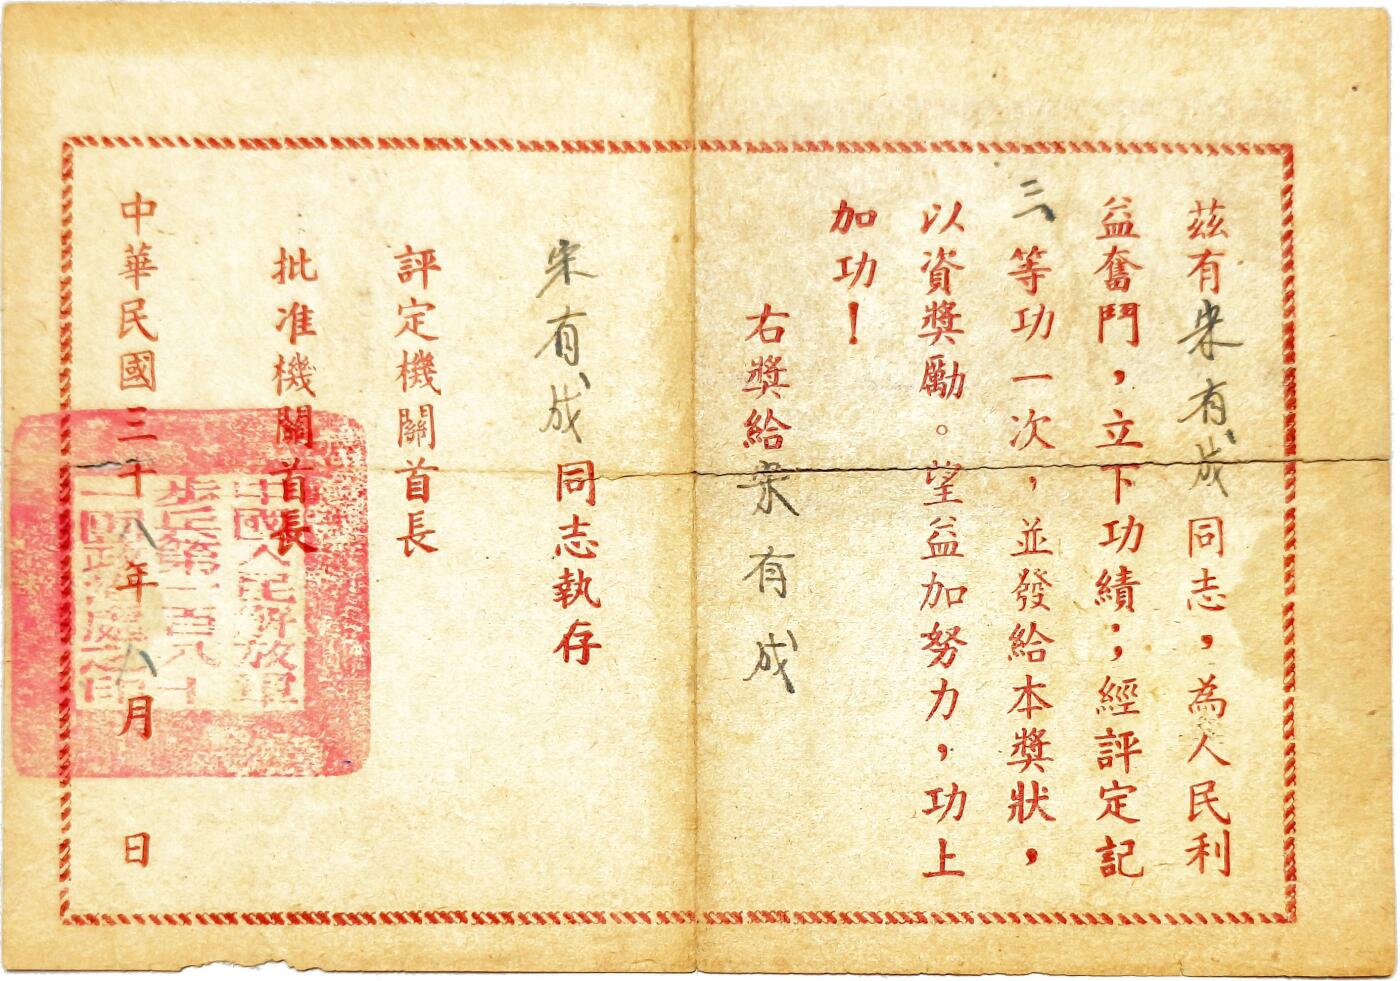 茲有宋有成同志，為人民利
益奮鬥，立下功績；經評定記
三等功一次，並發給本獎狀，
以資獎勵。望益加努力，功上
加功！
右獎給宋有成
宋有成同志執存
評定機關首長
批准機關首長
中華民國三十八年八月 日
中國人民解放軍
步兵第一百八十
一師政治處之印